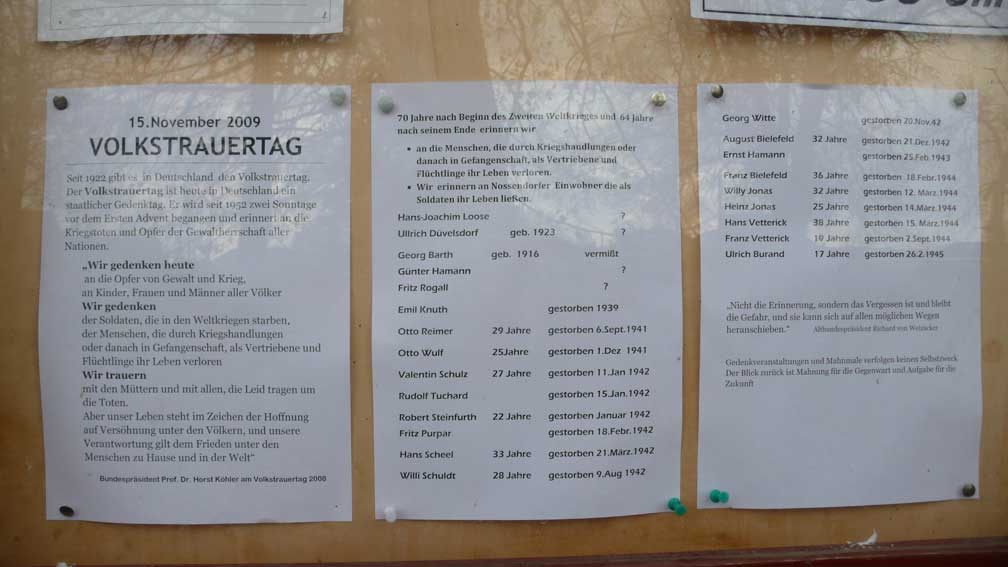 15.November 2009
VOLKSTRAUERTAG
Seit 1922 gibt es in Deutschland den Volkstrauertag.
Der Volkstrauertag ist heute in Deutschland ein
staatlicher Gedenktag. Er wird seit 1952 zwei Sonntage
vor dem Ersten Advent begangen und erinnert an die
Kriegstoten und Opfer der Gewaltherrschaft aller
Nationen.
„Wir gedenken heute
an die Opfer von Gewalt und Krieg,
an Kinder, Frauen und Männer aller Völker
Wir gedenken
der Soldaten, die in den Weltkriegen starben,
der Menschen, die durch Kriegshandlungen
oder danach in Gefangenschaft, als Vertriebene und
Flüchtlinge ihr Leben verloren
Wir trauern
mit den Müttern und mit allen, die Leid tragen um
die Toten.
Aber unser Leben steht im Zeichen der Hoffnung
auf Versöhnung unter den Völkern, und unsere
Verantwortung gilt dem Frieden unter den
Menschen zu Hause und in der Welt“
Bundespräsident Prof. Dr. Horst Köhler am Volkstrauertag 2008
70 Jahre nach Beginn des Zweiten Weltkrieges und 64 Jahre
nach seinem Ende erinnern wir
• an die Menschen, die durch Kriegshandlungen oder
danach in Gefangenschaft, als Vertriebene und
Flüchtlinge ihr Leben verloren.
• Wir erinnern an Nossendorfer Einwohner die als
Soldaten ihr Leben ließen.
Hans-Joachim Loose ?
Ullrich Düvelsdorf geb. 1923 ?
Georg Barth geb. 1916 vermißt
Günter Hamann ?
Fritz Rogall ?
Emil Knuth gestorben 1939
Otto Reimer 29 Jahre gestorben 6.Sept.1941
Otto Wulf 25Jahre gestorben 1.Dez 1941
Valentin Schulz 27 Jahre gestorben 11.Jan 1942
Rudolf Tuchard gestorben 15.Jan.1942
Robert Steinfurth 22 Jahre gestorben Januar 1942
Fritz Purpar gestorben 18.Febr.1942
Hans Scheel 33 Jahre gestorben 21.März.1942
Willi Schuldt 28 Jahre gestorben 9.Aug 1942
Georg Witte gestorben 20.Nov.42
August Bielefeld 32 Jahre gestorben 21.Dez.1942
Ernst Hamann gestorben 25.Feb.1943
Franz Bielefeld 36 Jahre gestorben 18.Febr.1944
Willy Jonas 32 Jahre gestorben 12. März.1944
Heinz Jonas 25 Jahre gestorben 14.März.1944
Hans Vetterick 38 Jahre gestorben 15. März.1944
Franz Vetterick 19 Jahre gestorben 2.Sept.1944
Ulrich Burand 17 Jahre gestorben 26.2.1945
„Nicht die Erinnerung, sondern das Vergessen ist und bleibt
die Gefahr, und sie kann sich auf allen möglichen Wegen
heranschieben.“ Altbundespräsident Richard von Weizäcker
Gedenkveranstaltungen und Mahnmale verfolgen keinen Selbstzweck
Der Blick zurück ist Mahnung für die Gegenwart und Aufgabe für die
Zukunft